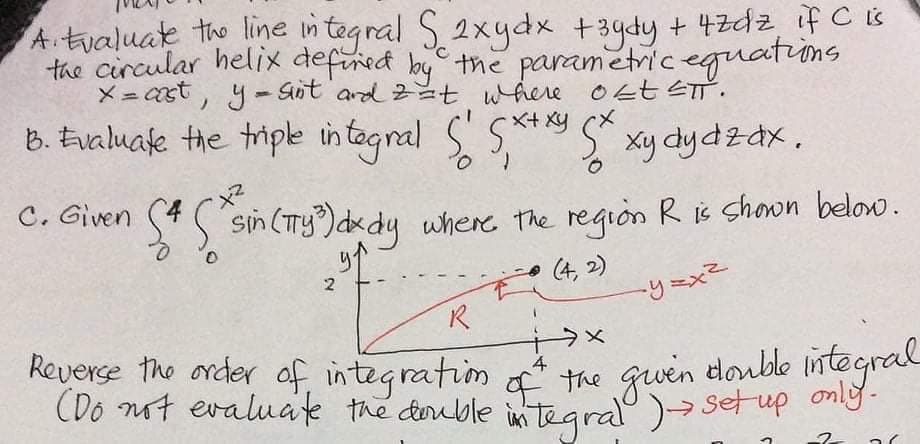 A. Evaluate the line integral ∫_C 2xydx + 3ydy + 4zdz if C is
the circular helix defined by the parametric equations
x = cost, y = sint and z = t where 0 ≤ t ≤ π.
B. Evaluate the triple integral ∫_0^1 ∫_1^{x+xy} ∫_0^x xy dy dz dx.
C. Given ∫_0^4 ∫_0^{x^2} sin(πy^3) dx dy where the region R is shown below.
y
2
(4, 2)
y = x^2
R
x
4
Reverse the order of integration of the given double integral
(Do not evaluate the double integral) → set up only.